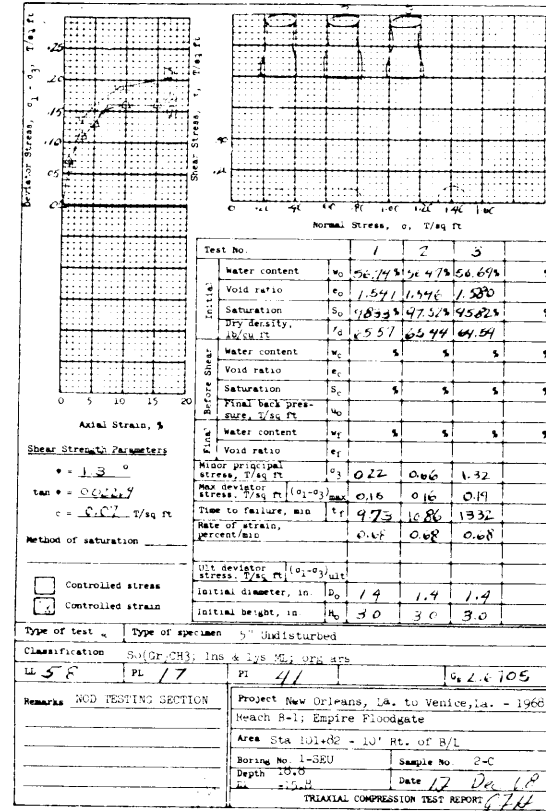 Deviator Stress, σ1 - σ3, T/sq ft
Shear Stress, τ, T/sq ft
.25
.20
.15
.10
.05
0
0 5 10 15 20
Axial Strain, %
0 .40 .80 1.20 1.40 1.60
Normal Stress, σ, T/sq ft
Shear Strength Parameters
φ = 1.3 °
tan φ =
c = 0.07 T/sq ft
Method of saturation
Controlled stress
Controlled strain
Test No. 1 2 3
Initial
Water content w0 56.74% 56.47% 56.69%
Void ratio e0 1.541 1.546 1.580
Saturation S0 98.33% 97.52% 95.82%
Dry density, lb/cu ft γd 65.57 65.44 64.54
Before Shear
Water content wc % % %
Void ratio ec
Saturation Sc % % %
Final back pressure, T/sq ft u0
Final
Water content wf % % %
Void ratio ef
Minor principal stress, T/sq ft σ3 0.22 0.66 1.32
Max deviator stress, T/sq ft (σ1-σ3)max 0.16 0.16 0.19
Time to failure, min tf 9.73 10.86 13.32
Rate of strain, percent/min 0.68 0.68 0.68
Ult deviator stress, T/sq ft (σ1-σ3)ult
Initial diameter, in. D0 1.4 1.4 1.4
Initial height, in. H0 3.0 3.0 3.0
Type of test Q Type of specimen 5" Undisturbed
Classification So(Gr)CH3; lns & lys ML; org
LL 58 PL 17 PI 41 Gs 2.6705
Remarks NOD TESTING SECTION
Project New Orleans, La. to Venice, La. - 1968
Reach B-1; Empire Floodgate
Area Sta 101+82 - 10' Rt. of B/L
Boring No. 1-SEU Sample No. 2-C
Depth 18.8
El -15.8
Date 17 Dec 68
TRIAXIAL COMPRESSION TEST REPORT